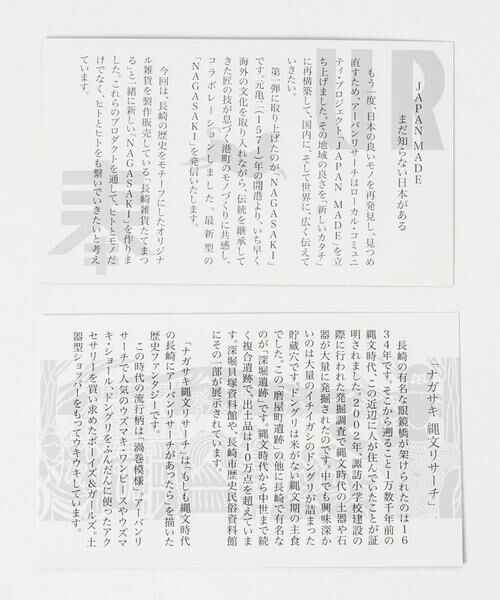 JAPAN MADE
まだ知らない日本がある
もう一度、日本の良いモノを再発見し、見つめ
直すため、アーバンリサーチはローカル・コミュニ
ティ・プロジェクト、「JAPAN MADE」を立
ち上げました。その地域の良さを、「新しいカタチ」
に再構築して、国内に、そして世界に、広く伝えて
いきたい。
第一弾に取り上げたのが、「NAGASAKI」
です。元亀二(1571)年の開港より、いち早く
海外の文化を取り入れながら、伝統を継承して
きた匠の技が息づく港町のモノづくりに共感し、
コラボレーションしました。最新型の
「NAGASAKI」を発信いたします。
今回は、長崎の歴史をモチーフにしたオリジナ
ル雑貨を製作販売している「長崎雑貨たてまつ
る」と一緒に新しい「NAGASAKI」を作りま
した。これらのプロダクトを通して、ヒトとモノだ
けでなく、ヒトとヒトをも繋いでいきたいと考え
ています。
「ナガサキ縄文リサーチ」
長崎の有名な眼鏡橋が架けられたのは16
34年です。そこから遡ること1万数千年前の
縄文時代、この近辺に人が住んでいたことが証
明されました。2002年、諏訪小学校建設の
際に行われた発掘調査で縄文時代の土器や石
器が大量に発掘されたのです。中でも興味深か
いのは大量のイチイガシのドングリが詰まった
貯蔵穴です。ドングリは米がない縄文期の主食
でした。この「磨屋町遺跡」の他に長崎で有名な
のが「深堀遺跡」です。縄文時代から中世まで続
く複合遺跡で、出土品は10万点を超えていま
す。深堀貝塚資料館や、長崎市歴史民俗資料館
にその一部が展示されています。
「ナガサキ縄文リサーチ」は「もしも縄文時代
の長崎にアーバンリサーチがあったら」を描いた
歴史ファンタジーです。
この時代の流行柄は、「渦巻模様」。アーバンリ
サーチで人気のウズマキ・ワンピースやウズマ
キ・ショール、ドングリをふんだんに使ったアク
セサリーを買い求めたボーイズ&ガールズ。土
器型ショッパーをもってウキウキしています。